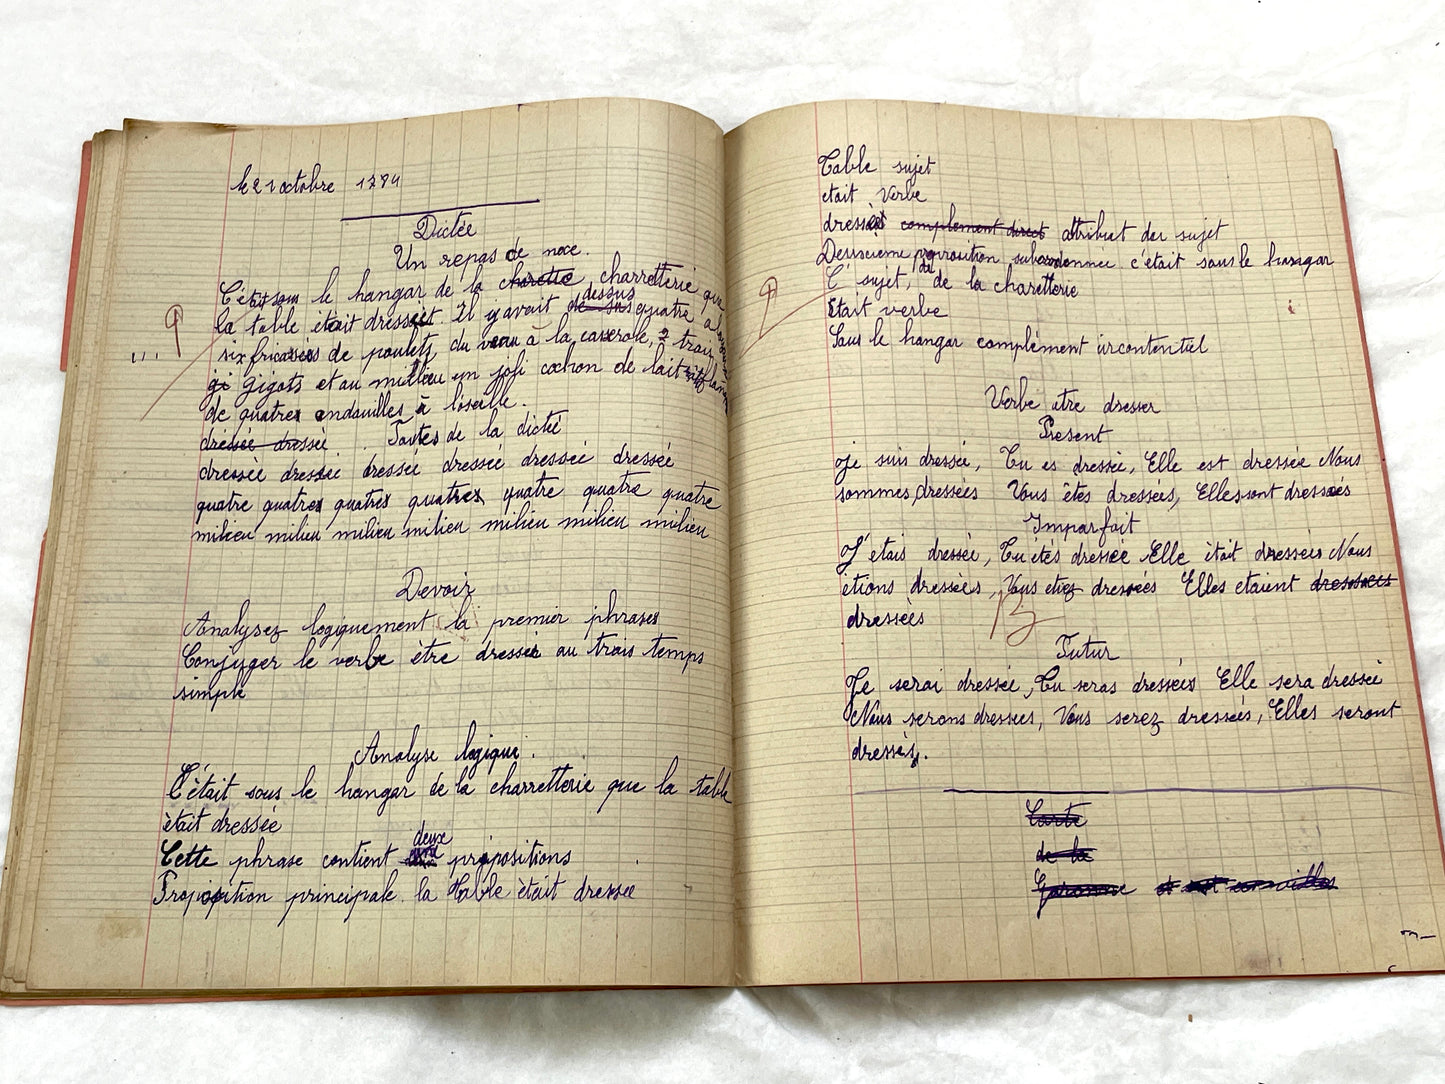 le 21 octobre 1794
Dictée
Un repas de noce.
C'était sous le hangar de la charettie charretterie que
la table était dressèet. Il y avait de sus dessus quatre
six fricassées de poulets, du veau à la casserole, 2 trois
gi gigots et au millieu un joli cochon de lait
de quatres andouilles à l'oseille.
dréssée dressée Fautes de la dictée
dressée dressée dressée dressée dressée dressée
quatre quatres quatres quatres quatre quatre quatre
milieu milieu milieu milieu milieu milieu milieu
Devoir
Analysez logiquement la premier phrases
Conjuger le verbe ètre dressée au trois temps
simple
Analyse logique.
C'était sous le hangar de la charretterie que la table
ètait dressée
Cette phrase contient deux propositions
Proposition principale la table ètait dressée
Table sujet
etait Verbe
dressèet complement direct attribut du sujet
Deuxieme proposition subordonnee c'était sous le hangar
C' sujet, de la charetterie
Etait verbe
Sous le hangar complément circontentiel
Verbe etre dresser
Present
Je suis dressée, Tu es dressée, Elle est dressée Nous
sommes dressées Vous êtes dressées, Elles sont dressées
Imparfait
J'étais dressée, Tu étés dressée Elle ètait dressées Nous
étions dressées, Vous etiez dressées Elles etaient dressees
dressées
B
Futur
Je serai dressée, Tu seras dressées Elle sera dressée
Nous serons dressees, Vous serez dressées, Elles seront
dressés.
Carte
de la
Garonne